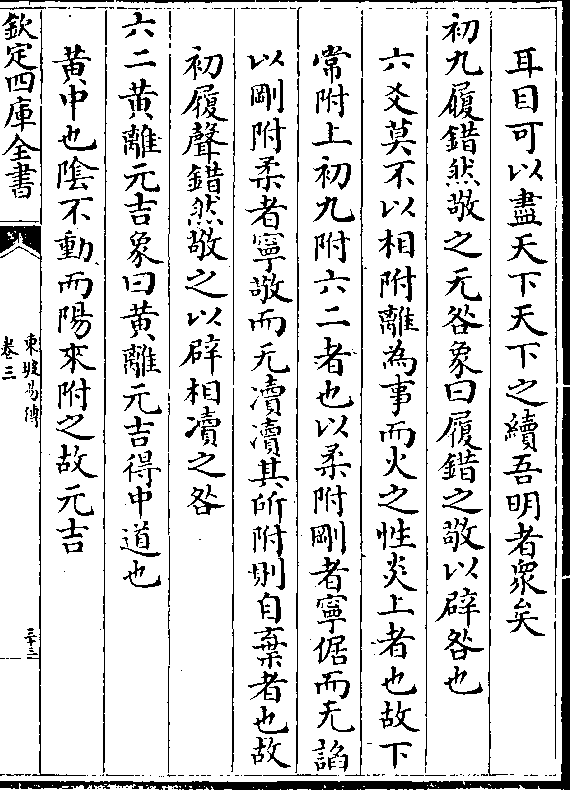 耳目可以盡天下天下之續吾明者衆矣
初九履錯然敬之无咎象曰履錯之敬以辟咎也
六爻莫不以相附離為事而火之性炎上者也故下
常附上初九附六二者也以柔附剛者寧倨而无諂
以剛附柔者寧敬而无瀆瀆其所附則自棄者也故
初履聲錯然敬之以辟相瀆之咎
六二黃離元吉象曰黃離元吉得中道也
黃中也陰不動而陽來附之故元吉
欽定四庫全書
東坡易傳
卷三
三十三